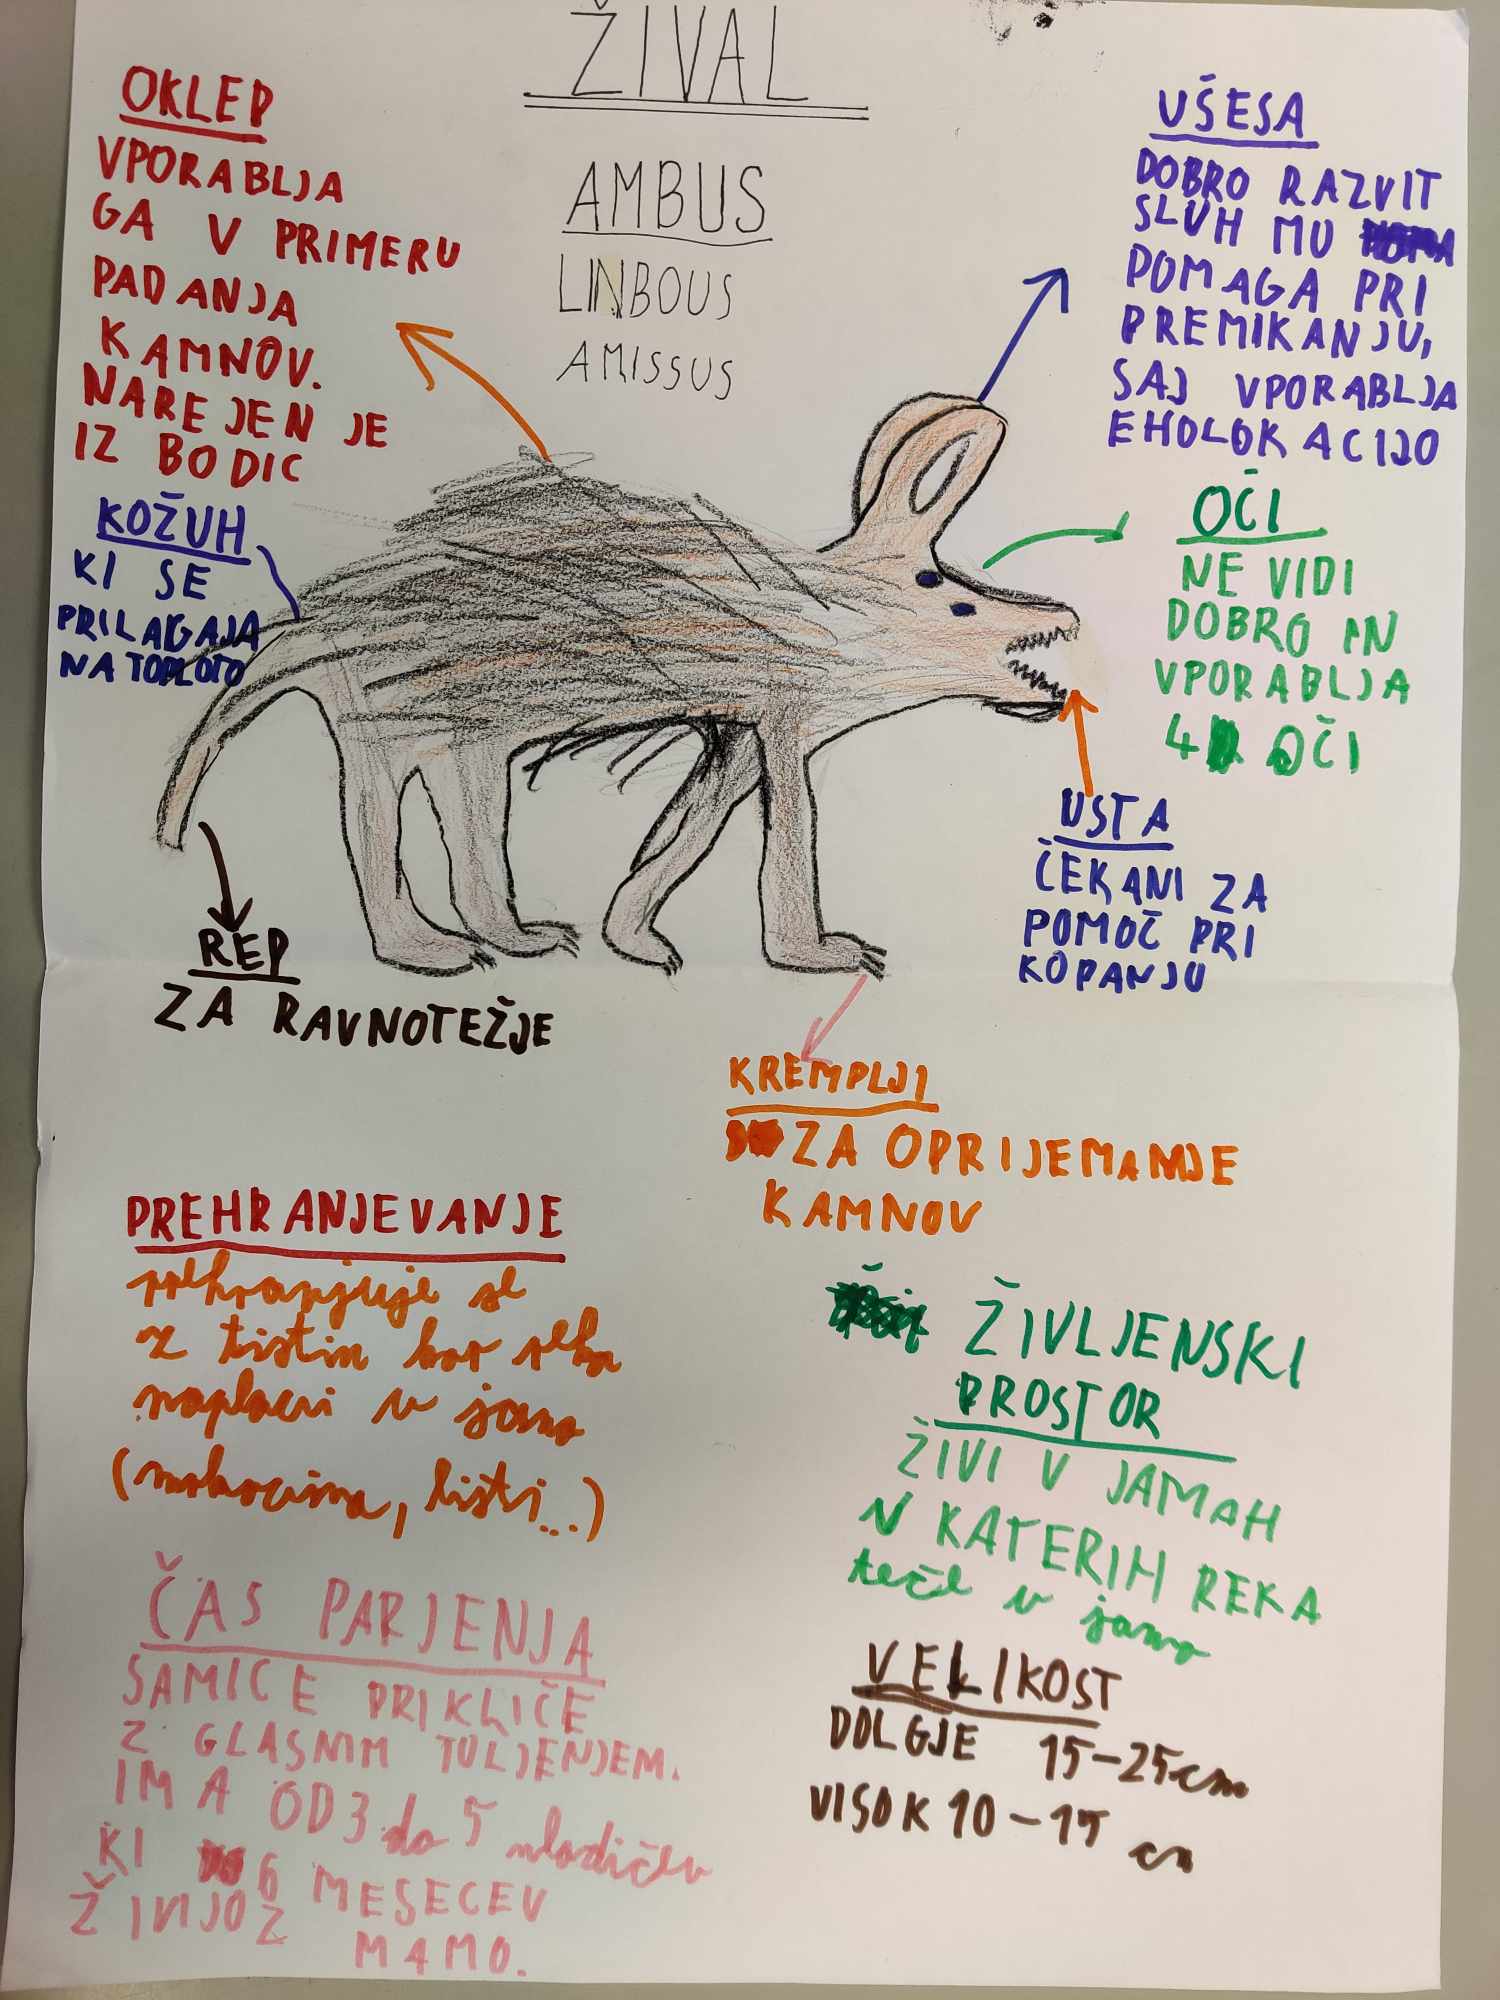 ŽIVAL
AMBUS
LINBOUS
AMISSUS
OKLEP
UPORABLJA
GA V PRIMERU
PADANJA
KAMNOV.
NAREJEN JE
IZ BODIC
KOŽUH
KI SE
PRILAGAJA
NA TOPLOTO
UŠESA
DOBRO RAZVIT
SLUH MU
POMAGA PRI
PREMIKANJU,
SAJ UPORABLJA
EHOLOKACIJO
OČI
NE VIDI
DOBRO IN
UPORABLJA
4 OČI
USTA
ČEKANI ZA
POMOČ PRI
KOPANJU
REP
ZA RAVNOTEŽJE
KREMPLJI
ZA OPRIJEMANJE
KAMNOV
PREHRANJEVANJE
prehranjuje se
z tistim kar reka
naplavi v jamo
(mrhovina, listi...)
ŽIVLJENSKI
PROSTOR
ŽIVI V JAMAH
V KATERIH REKA
teče v jamo
ČAS PARJENJA
SAMICE PRIKLIČE
Z GLASNIM TULJENJEM.
IMA OD 3 do 5 mladičev
KI 6 MESECEV
ŽIVIJO Z
MAMO.
VELIKOST
DOLGJE 15-25cm
VISOK 10-15 cm